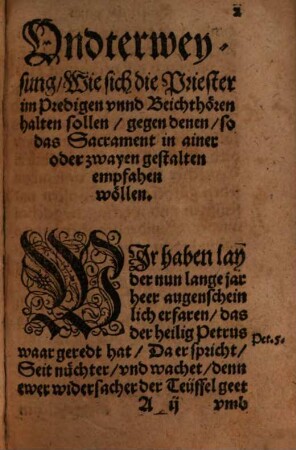 2
Vndterwey-
sung/Wie sich die Priester
im Predigen vnnd Beichthören
halten sollen / gegen denen/so
das Sacrament in ainer
oder zwayen gestalten
empfahen
wöllen.
WIr haben lay
der nun lange jar
heer augenschein
lich erfaren/das
der heilig Petrus
Pet. 5.
waar geredt hat / Da er spricht/
Seit nüchter/vnd wachet/denn
ewer widersacher der Teüffel geet
A ij vmb